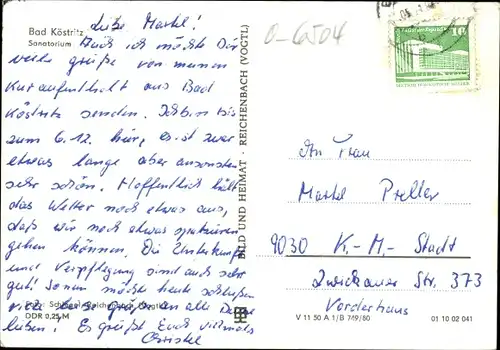 Bad Köstritz
Sanatorium
Liebe Martel!
Auch ich möchte Dir
viele Grüße von meinem
Kuraufenthalt aus Bad
Köstritz senden. Ich bin bis
zum 6.12. hier, es ist zwar
etwas lange aber ansonsten
sehr schön. Hoffentlich hält
das Wetter noch etwas aus,
daß wir noch etwas spazieren
gehen können. Die Unterkunft
und Verpflegung sind auch sehr
gut! So nun möchte heute schließen
viele Grüße an alle
Lieben! Es grüßt Euch vielmals
Christel
DDR 0,25 M
BILD UND HEIMAT · REICHENBACH (VOGTL)
O-6504
10
An Frau
Martel Preller
9030 K.-M.-Stadt
Zwickauer Str. 373
Vorderhaus
V 11 50 A 1/B 749/80
01 10 02 041